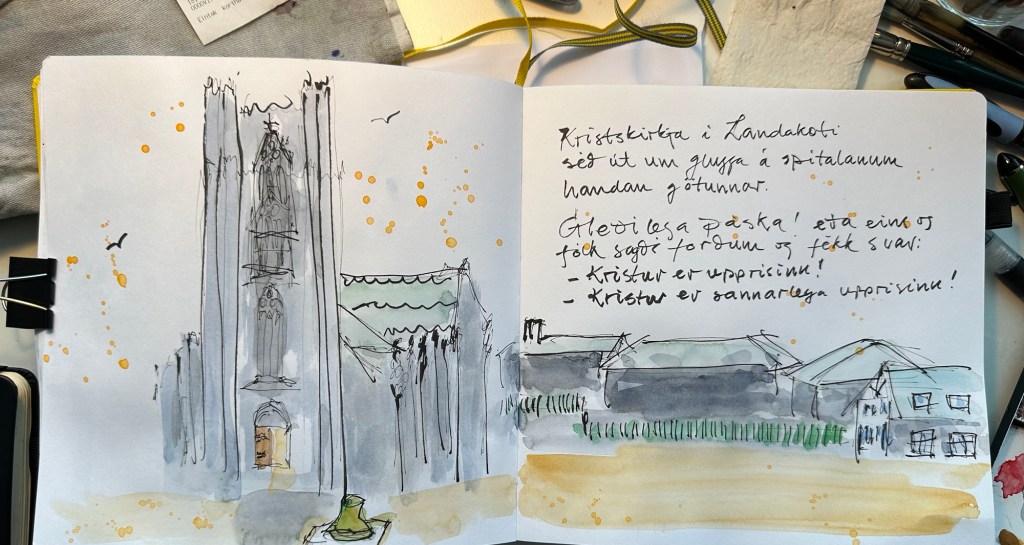 Kristskirkja í Landakoti
séð út um glugga á spítalanum
handan götunnar.
Gleðilega páska! eða eins og
fólk sagði forðum og fékk svar:
- Kristur er upprisinn!
- Kristur er sannarlega upprisinn!